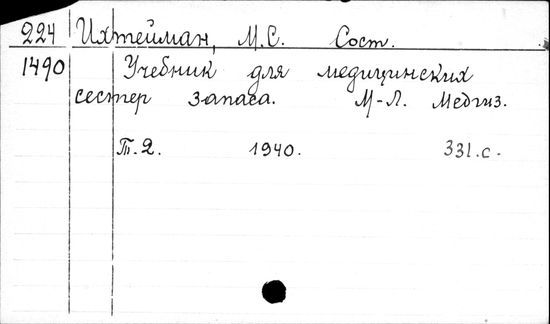 224 Ихтейман, М.С. Сост.
1490 Учебник для медицинских
сестер запаса. М-Л. Медгиз.
Т.2. 1940. 331.с.